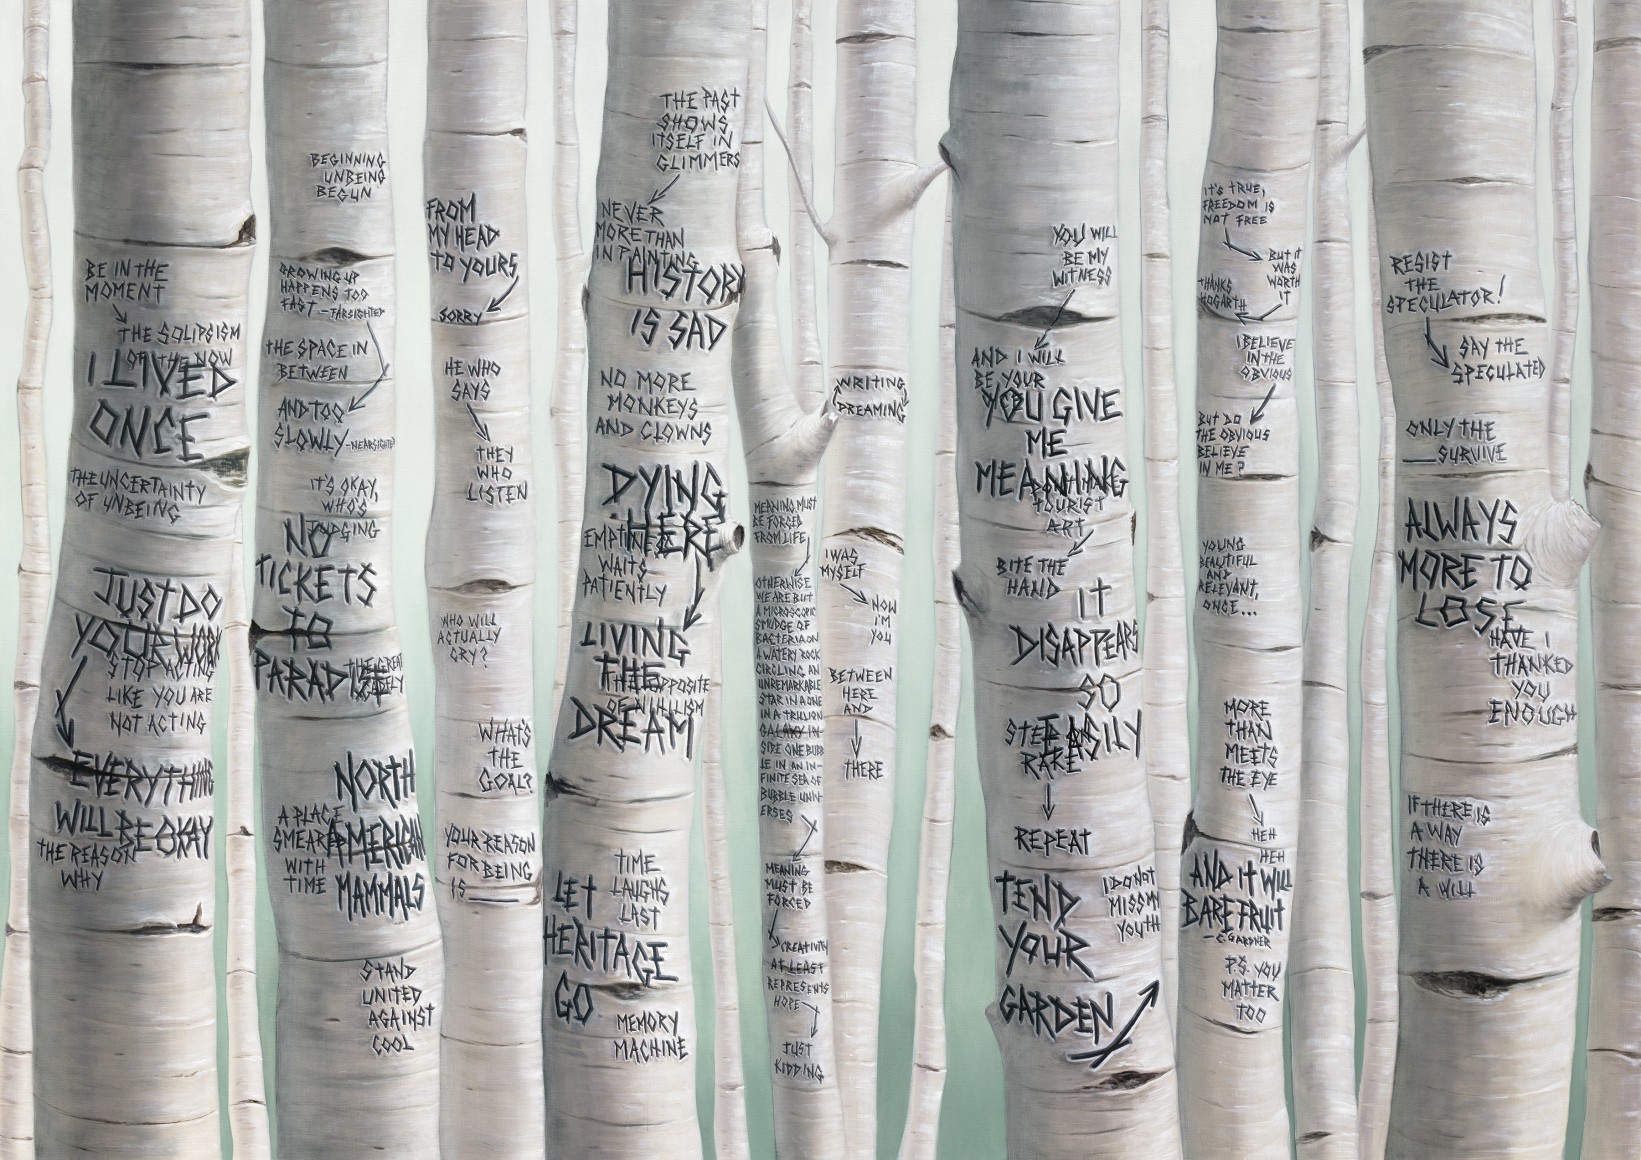 BE IN THE
MOMENT
THE SOLIPSISM
OF THE NOW
I LIVED
ONCE
THE UNCERTAINTY
OF UNBEING
JUST DO
YOUR WORK
STOP ACTING
LIKE YOU ARE
NOT ACTING
EVERYTHING
WILL BE OKAY
THE REASON
WHY
BEGINNING
UNBEING
BEGUN
GROWING UP
HAPPENS TOO
FAST -FARSIGHTED
THE SPACE IN
BETWEEN
AND TOO
SLOWLY -NEARSIGHTED
IT'S OKAY,
WHO'S
JUDGING
NO
TICKETS
TO
PARADISE
THE GREAT
NORTH
AMERICAN
MAMMALS
A PLACE
SMEARED
WITH
TIME
STAND
UNITED
AGAINST
COOL
FROM
MY HEAD
TO YOURS
SORRY
HE WHO
SAYS
THEY
WHO
LISTEN
WHO WILL
ACTUALLY
CRY?
WHATS
THE
GOAL?
YOUR REASON
FOR BEING
IS ____
THE PAST
SHOWS
ITSELF IN
GLIMMERS
NEVER
MORE THAN
IN PAINTING
HISTORY
IS SAD
NO MORE
MONKEYS
AND CLOWNS
DYING
HERE
EMPTINESS
WAITS
PATIENTLY
LIVING
THE
DREAM
THE OPPOSITE
OF NIHILISM
TIME
LAUGHS
LAST
LET
HERITAGE
GO
MEMORY
MACHINE
MEANING MUST
BE FORCED
FROM LIFE
OTHERWISE
WE ARE BUT
A MICROSCOPIC
SMUDGE OF
BACTERIA ON
A WATERY ROCK
CIRCLING AN
UNREMARKABLE
STAR IN A ONE
IN A TRILLION
GALAXY IN-
SIDE ONE BUBB
LE IN AN IN-
FINITE SEA OF
BUBBLE UNIV-
ERSES
MEANING
MUST BE
FORCED
CREATIVITY
AT LEAST
REPRESENTS
HOPE
JUST
KIDDING
WRITING
DREAMING
I WAS
MYSELF
NOW
I'M
YOU
BETWEEN
HERE
AND
THERE
YOU WILL
BE MY
WITNESS
AND I WILL
BE YOUR
YOU GIVE
ME
MEANING
DON'T MAKE
TOURIST
ART
BITE THE
HAND
IT
DISAPPEARS
SO
EASILY
STEP
RAKE
REPEAT
TEND
YOUR
GARDEN
I DO NOT
MISS MY
YOUTH
IT'S TRUE,
FREEDOM IS
NOT FREE
BUT IT
WAS
WORTH
IT
THANKS
HOGARTH
I BELIEVE
IN THE
OBVIOUS
BUT DO
THE OBVIOUS
BELIEVE
IN ME?
YOUNG
BEAUTIFUL
AND
RELEVANT,
ONCE...
MORE
THAN
MEETS
THE EYE
HEH
HEH
AND IT WILL
BARE FRUIT
-C. GARDNER
P.S. YOU
MATTER
TOO
RESIST
THE
SPECULATOR!
SAY THE
SPECULATED
ONLY THE
____ SURVIVE
ALWAYS
MORE TO
LOSE
HAVE I
THANKED
YOU
ENOUGH
IF THERE IS
A WAY
THERE IS
A WILL